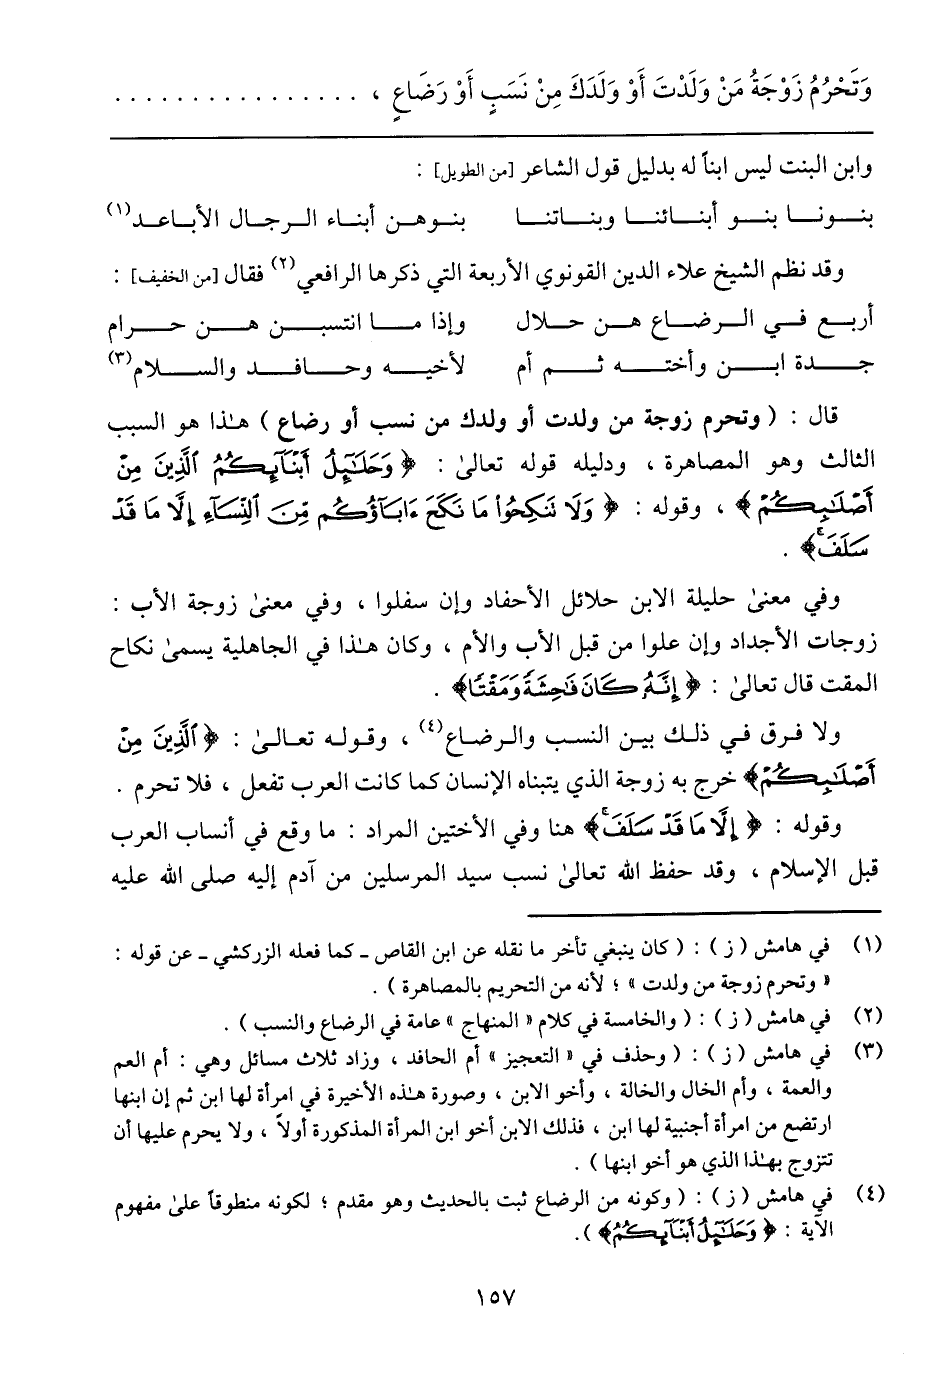 وَتَحْرُمُ زَوْجَةُ مَنْ وَلَدْتَ أَوْ وَلَدَكَ مِنْ نَسَبٍ أَوْ رَضَاعٍ ، . . . . . . . . . . . . . . . .
وابن البنت ليس ابناً له بدليل قول الشاعر [من الطويل] :
بنـونـا بنـو أبنـائنـا وبنـاتنـا بنـوهـن أبنـاء الـرجـال الأبـاعـد(١)
وقد نظم الشيخ علاء الدين القونوي الأربعة التي ذكرها الرافعي(٢) فقال [من الخفيف] :
أربـع فـي الـرضـاع هـن حـلال وإذا مـا انتسبـن هـن حـرام
جـدة ابـن وأختـه ثـم أم لأخيـه وحـافـد والسـلام(٣)
قال : ( وتحرم زوجة من ولدت أو ولدك من نسب أو رضاع ) هـٰذا هو السبب
الثالث وهو المصاهرة ، ودليله قوله تعالىٰ : ﴿ وَحَلَـٰٓئِلُ أَبْنَآئِكُمُ ٱلَّذِينَ مِنْ
أَصْلَـٰبِكُمْ ﴾ ، وقوله : ﴿ وَلَا تَنكِحُوا۟ مَا نَكَحَ ءَابَآؤُكُم مِّنَ ٱلنِّسَآءِ إِلَّا مَا قَدْ
سَلَفَ ۚ ﴾ .
وفي معنىٰ حليلة الابن حلائل الأحفاد وإن سفلوا ، وفي معنىٰ زوجة الأب :
زوجات الأجداد وإن علوا من قبل الأب والأم ، وكان هـٰذا في الجاهلية يسمىٰ نكاح
المقت قال تعالىٰ : ﴿ إِنَّهُۥ كَانَ فَـٰحِشَةً وَمَقْتًا ﴾ .
ولا فرق في ذلـك بيـن النسب والـرضـاع(٤) ، وقـولـه تعـالـىٰ : ﴿ ٱلَّذِينَ مِنْ
أَصْلَـٰبِكُمْ ﴾ خرج به زوجة الذي يتبناه الإنسان كما كانت العرب تفعل ، فلا تحرم .
وقوله : ﴿ إِلَّا مَا قَدْ سَلَفَ ۚ ﴾ هنا وفي الأختين المراد : ما وقع في أنساب العرب
قبل الإسلام ، وقد حفظ الله تعالىٰ نسب سيد المرسلين من آدم إليه صلى الله عليه
(١) في هامش ( ز ) : ( كان ينبغي تأخر ما نقله عن ابن القاص ـ كما فعله الزركشي ـ عن قوله :
« وتحرم زوجة من ولدت » ؛ لأنه من التحريم بالمصاهرة ) .
(٢) في هامش ( ز ) : ( والخامسة في كلام « المنهاج » عامة في الرضاع والنسب ) .
(٣) في هامش ( ز ) : ( وحذف في « التعجيز » أم الحافد ، وزاد ثلاث مسائل وهي : أم العم
والعمة ، وأم الخال والخالة ، وأخو الابن ، وصورة هـٰذه الأخيرة في امرأة لها ابن ثم إن ابنها
ارتضع من امرأة أجنبية لها ابن ، فذلك الابن أخو ابن المرأة المذكورة أولاً ، ولا يحرم عليها أن
تتزوج بهـٰذا الذي هو أخو ابنها ) .
(٤) في هامش ( ز ) : ( وكونه من الرضاع ثبت بالحديث وهو مقدم ؛ لكونه منطوقاً علىٰ مفهوم
الآية : ﴿ وَحَلَـٰٓئِلُ أَبْنَآئِكُمُ ﴾ ).
١٥٧